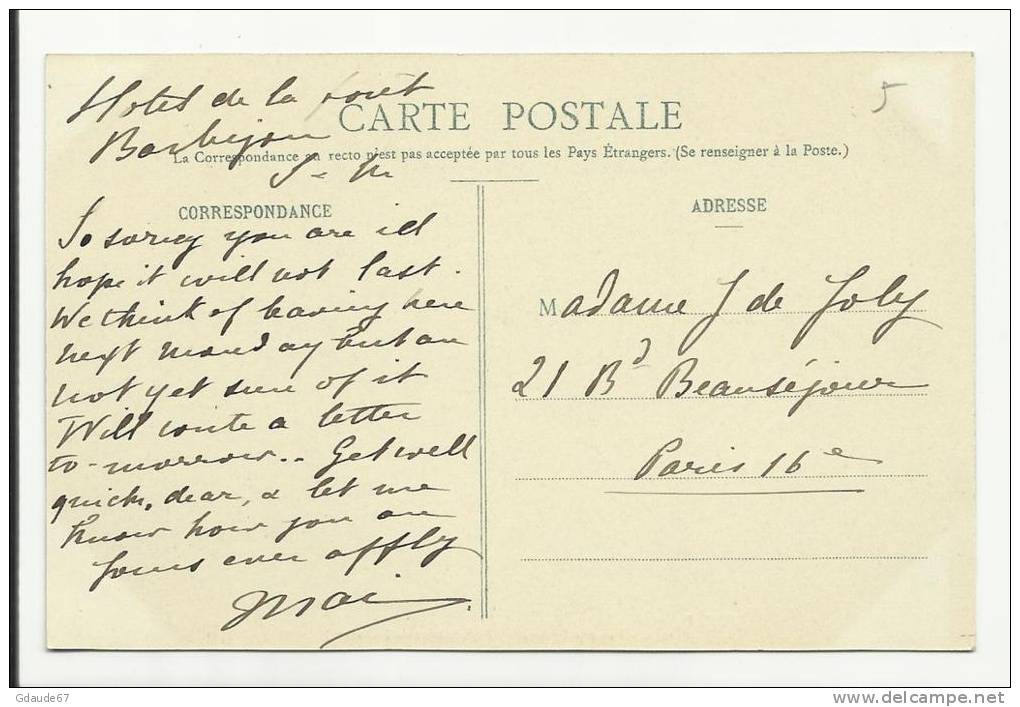 Hotel de la forêt
CARTE POSTALE
Barbizon
La Correspondance au recto n'est pas acceptée par tous les Pays Étrangers. (Se renseigner à la Poste.)
S-M
CORRESPONDANCE
So sorry you are ill
hope it will not last.
We think of leaving here
next monday but am
not yet sure of it
Will write a letter
to-morrow.. Get well
quick, dear, & let me
know how you are
Yours ever affly
ADRESSE
Madame J de Joly
21 Bd Beauséjour
Paris 16e
5
Gdaude67
http://www.delcampe.net